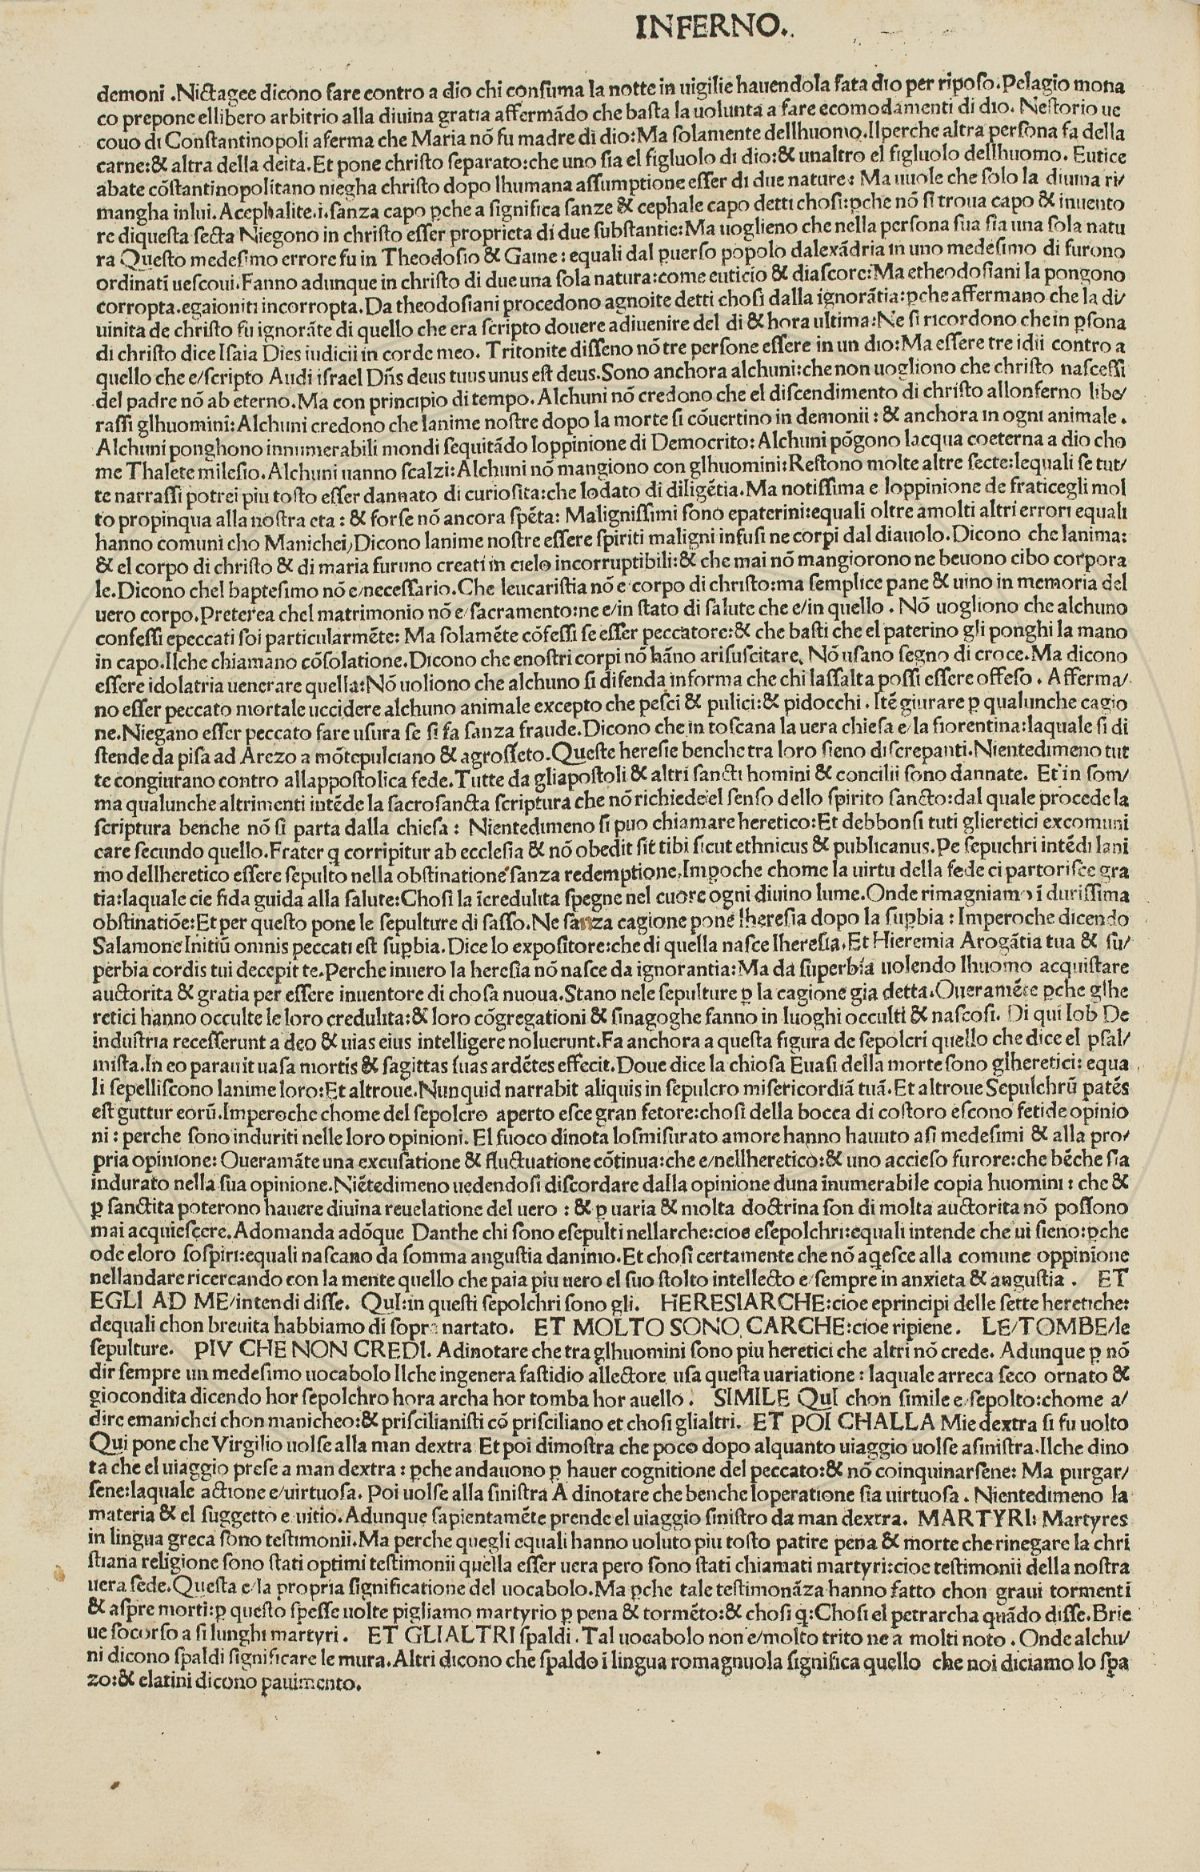 INFERNO.
demoni .Nictagee dicono fare contro a dio chi consuma la notte in uigilie hauendola fata dio per riposo.Pelagio mona
co prepone ellibero arbitrio alla diuina gratia affermãdo che basta la uolunta a fare ecomodamenti di dio. Nestorio ue
couo di Constantinopoli aferma che Maria nõ fu madre di dio:Ma solamente dellhuomo.Ilperche altra persona fa della
carne:& altra della deita.Et pone christo separato:che uno sia el figluolo di dio:& unaltro el figluolo dellhuomo. Eutice
abate cõstantinopolitano niegha christo dopo lhumana assumptione esser di due nature: Ma uuole che solo la diuina ri/
mangha inlui.Acephalite.i.sanza capo pche a significa sanze & cephale capo detti chosi:pche nõ si troua capo & inuento
re diquesta secta Niegono in christo esser proprieta di due substantie:Ma uoglieno che nella persona sua sia una sola natu
ra Questo medesimo errore fu in Theodosio & Gaine: equali dal puerso popolo dalexãdria in uno medesimo di furono
ordinati uescoui.Fanno adunque in christo di due una sola natura:come euticio & diascore:Ma etheodosiani la pongono
corropta.egaioniti incorropta.Da theodosiani procedono agnoite detti chosi dalla ignorãtia:pche affermano che la di/
uinita de christo fu ignorãte di quello che era scripto douere adiuenire del di & hora ultima:Ne si ricordono che in psona
di christo dice Isaia Dies iudicii in corde meo. Tritonite disseno nõ tre persone essere in un dio:Ma essere tre idii contro a
quello che e/scripto Audi israel Dñs deus tuus unus est deus.Sono anchora alchuni:che non uogliono che christo nascessi
del padre nõ ab eterno.Ma con principio di tempo.Alchuni nõ credono che el discendimento di christo allonferno libe/
rassi glhuomini:Alchuni credono che lanime nostre dopo la morte si cõuertino in demonii : & anchora in ogni animale .
Alchuni ponghono innumerabili mondi sequitãdo loppinione di Democrito: Alchuni põgono lacqua coeterna a dio cho
me Thalete milesio.Alchuni uanno scalzi:Alchuni nõ mangiono con glhuomini:Restono molte altre secte:lequali se tut/
te narrassi potrei piu tosto esser dannato di curiosita:che lodato di diligẽtia.Ma notissima e loppinione de fraticegli mol
to propinqua alla nostra eta : & forse nõ ancora spẽta: Malignissimi sono epaterini:equali oltre amolti altri errori equali
hanno comuni cho Manichei,Dicono lanime nostre essere spiriti maligni infusi ne corpi dal diauolo.Dicono che lanima:
& el corpo di christo & di maria furuno creati in cielo incorruptibili:& che mai nõ mangiorono ne beuono cibo corpora
le.Dicono chel baptesimo nõ e/necessario.Che leucaristia nõ e corpo di christo:ma semplice pane & uino in memoria del
uero corpo.Preterea chel matrimonio nõ e/sacramento:ne e/in stato di salute che e/in quello . Nõ uogliono che alchuno
confessi epeccati soi particularmẽte: Ma solamẽte cõfessi se esser peccatore:& che basti che el paterino gli ponghi la mano
in capo.Ilche chiamano cõsolatione.Dicono che enostri corpi nõ hãno arisuscitare. Nõ usano segno di croce.Ma dicono
essere idolatria uenerare quella:Nõ uoliono che alchuno si difenda informa che chi lassalta possi essere offeso . Afferma/
no esser peccato mortale uccidere alchuno animale excepto che pesci & pulici:& pidocchi . Itẽ giurare p qualunche cagio
ne.Niegano esser peccato fare usura se si fa sanza fraude.Dicono che in toscana la uera chiesa e/la fiorentina:laquale si di
stende da pisa ad Arezo a mõtepulciano & agrosseto.Queste heresie benche tra loro sieno discrepanti.Nientedimeno tut
te congiurano contro allappostolica fede.Tutte da gliapostoli & altri sancti homini & concilii sono dannate. Et in som/
ma qualunche altrimenti intẽde la sacrosancta scriptura che nõ richiede el senso dello spirito sancto:dal quale procede la
scriptura benche nõ si parta dalla chiesa : Nientedimeno si puo chiamare heretico:Et debbonsi tuti glieretici excomuni
care secundo quello.Frater q corripitur ab ecclesia & nõ obedit sit tibi sicut ethnicus & publicanus.Pe sepuchri intẽdi lani
mo dellheretico essere sepulto nella obstinatione sanza redemptione.Impoche chome la uirtu della fede ci partorisce gra
tia:laquale cie fida guida alla salute:Chosi la ĩcredulita spegne nel cuore ogni diuino lume.Onde rimagniamo ĩ durissima
obstinatiõe:Et per questo pone le sepulture di sasso.Ne sanza cagione pone lheresia dopo la supbia : Imperoche dicendo
Salamone Initiũ omnis peccati est supbia.Dice lo expositore:che di quella nasce lheresia.Et Hieremia Arogãtia tua & su/
perbia cordis tui decepit te.Perche inuero la heresia nõ nasce da ignorantia:Ma da superbia uolendo lhuomo acquistare
auctorita & gratia per essere inuentore di chosa nuoua.Stano nele sepulture p la cagione gia detta.Oueramẽte pche glhe
retici hanno occulte le loro credulita:& loro cõgregationi & sinagoghe fanno in luoghi occulti & nascosi. Di qui Iob De
industria recesserunt a deo & uias eius intelligere noluerunt.Fa anchora a questa figura de sepolcri quello che dice el psal/
mista.In eo parauit uasa mortis & sagittas suas ardẽtes effecit.Doue dice la chiosa Euasi della morte sono glheretici: equa
li sepelliscono lanime loro:Et altroue.Nunquid narrabit aliquis in sepulcro misericordiã tuã.Et altroue Sepulchrũ patẽs
est guttur eorũ.Imperoche chome del sepolcro aperto esce gran fetore:chosi della bocca di costoro escono fetide opinio
ni : perche sono indurati nelle loro opinioni. El fuoco dinota losmisurato amore hanno hauuto a si medesimi & alla pro/
pria opinione: Oueramãte una excusatione & fluctuatione cõtinua:che e/nellheretico:& uno acceso furore:che bẽche sia
indurato nella sua opinione.Niẽtedimeno uedendosi discordare dalla opinione duna inumerabile copia huomini : che &
p sanctita poterono hauere diuina reuelatione del uero : & p uaria & molta doctrina son di molta auctorita nõ possono
mai acquiescere.Adomanda adõque Danthe chi sono esepulti nellarche:cioe esepolchri:equali intende che ui sieno:pche
ode eloro sospiri:equali nascano da somma angustia danimo.Et chosi certamente che nõ aqesce alla comune oppinione
nellandare ricercando con la mente quello che paia piu uero el suo stolto intellecto e/sempre in anxieta & angustia . ET
EGLI AD ME/intendi disse. QuI:in questi sepolchri sono gli. HERESIARCHE:cioe eprincipi delle sette heretiche:
dequali chon breuita habbiamo di sopra nartato. ET MOLTO SONO CARCHE:cioe ripiene. LE/TOMBE/le
sepulture. PIV CHE NON CREDI. Adinotare che tra glhuomini sono piu heretici che altri nõ crede. Adunque p nõ
dir sempre un medesimo uocabolo Ilche ingenera fastidio allectore usa questa uariatione : laquale arreca seco ornato &
giocondita dicendo hor sepolchro hora archa hor tomba hor auello . SIMILE QuI chon simile e/sepolto:chome a/
dire emanichei chon manicheo:& priscilianisti cõ prisciliano et chosi glialtri. ET POI CHALLA Mie dextra si fu uolto
Qui pone che Virgilio uolse alla man dextra Et poi dimostra che poco dopo alquanto uiaggio uolse asinistra.Ilche dino
ta che el uiaggio prese a man dextra : pche andauono p hauer cognitione del peccato:& nõ coinquinarsene: Ma purgar/
sene:laquale actione e/uirtuosa. Poi uolse alla sinistra A dinotare che benche loperatione sia uirtuosa . Nientedimeno la
materia & el suggetto e uitio.Adunque sapientamẽte prende el uiaggio sinistro da man dextra. MARTYRI: Martyres
in lingua greca sono testimonii.Ma perche quegli equali hanno uoluto piu tosto patire pena & morte che rinegare la chri
stiana religione sono stati optimi testimonii quella esser uera pero sono stati chiamati martyri:cioe testimonii della nostra
uera fede.Questa e/la propria significatione del uocabolo.Ma pche tale testimonãza hanno fatto chon graui tormenti
& aspre morti:p questo spesse uolte pigliamo martyrio p pena & tormẽto:& chosi q:Chosi el petrarcha quãdo disse.Brie
ue socorso a si lunghi martyri . ET GLIALTRI spaldi.Tal uocabolo non e/molto trito ne a molti noto . Onde alchu/
ni dicono spaldi significare le mura.Altri dicono che spaldo ĩ lingua romagnuola significa quello che noi diciamo lo spa
zo:& elatini dicono pauimento.